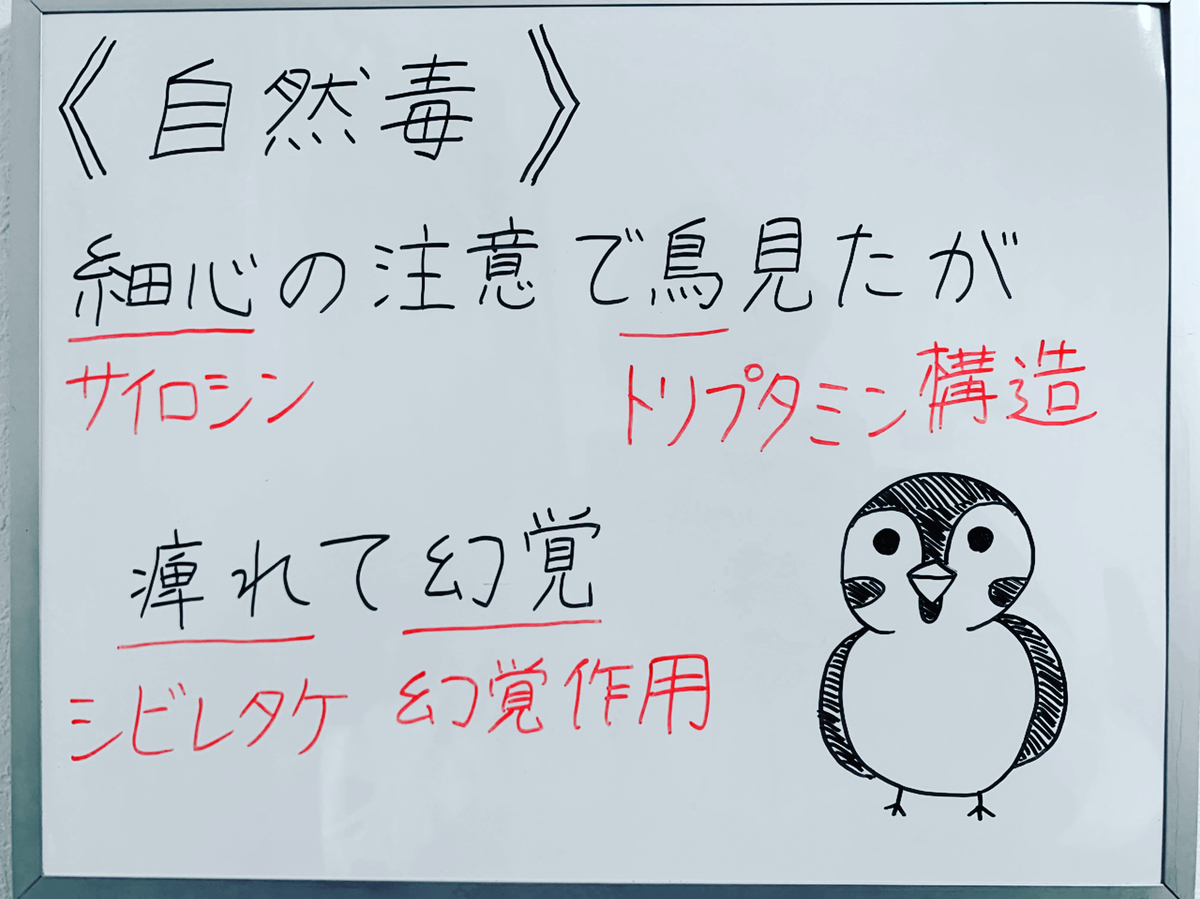 《自然毒》
細心の注意で鳥見たが
サイロシン トリプタミン構造
痺れて幻覚
シビレタケ 幻覚作用